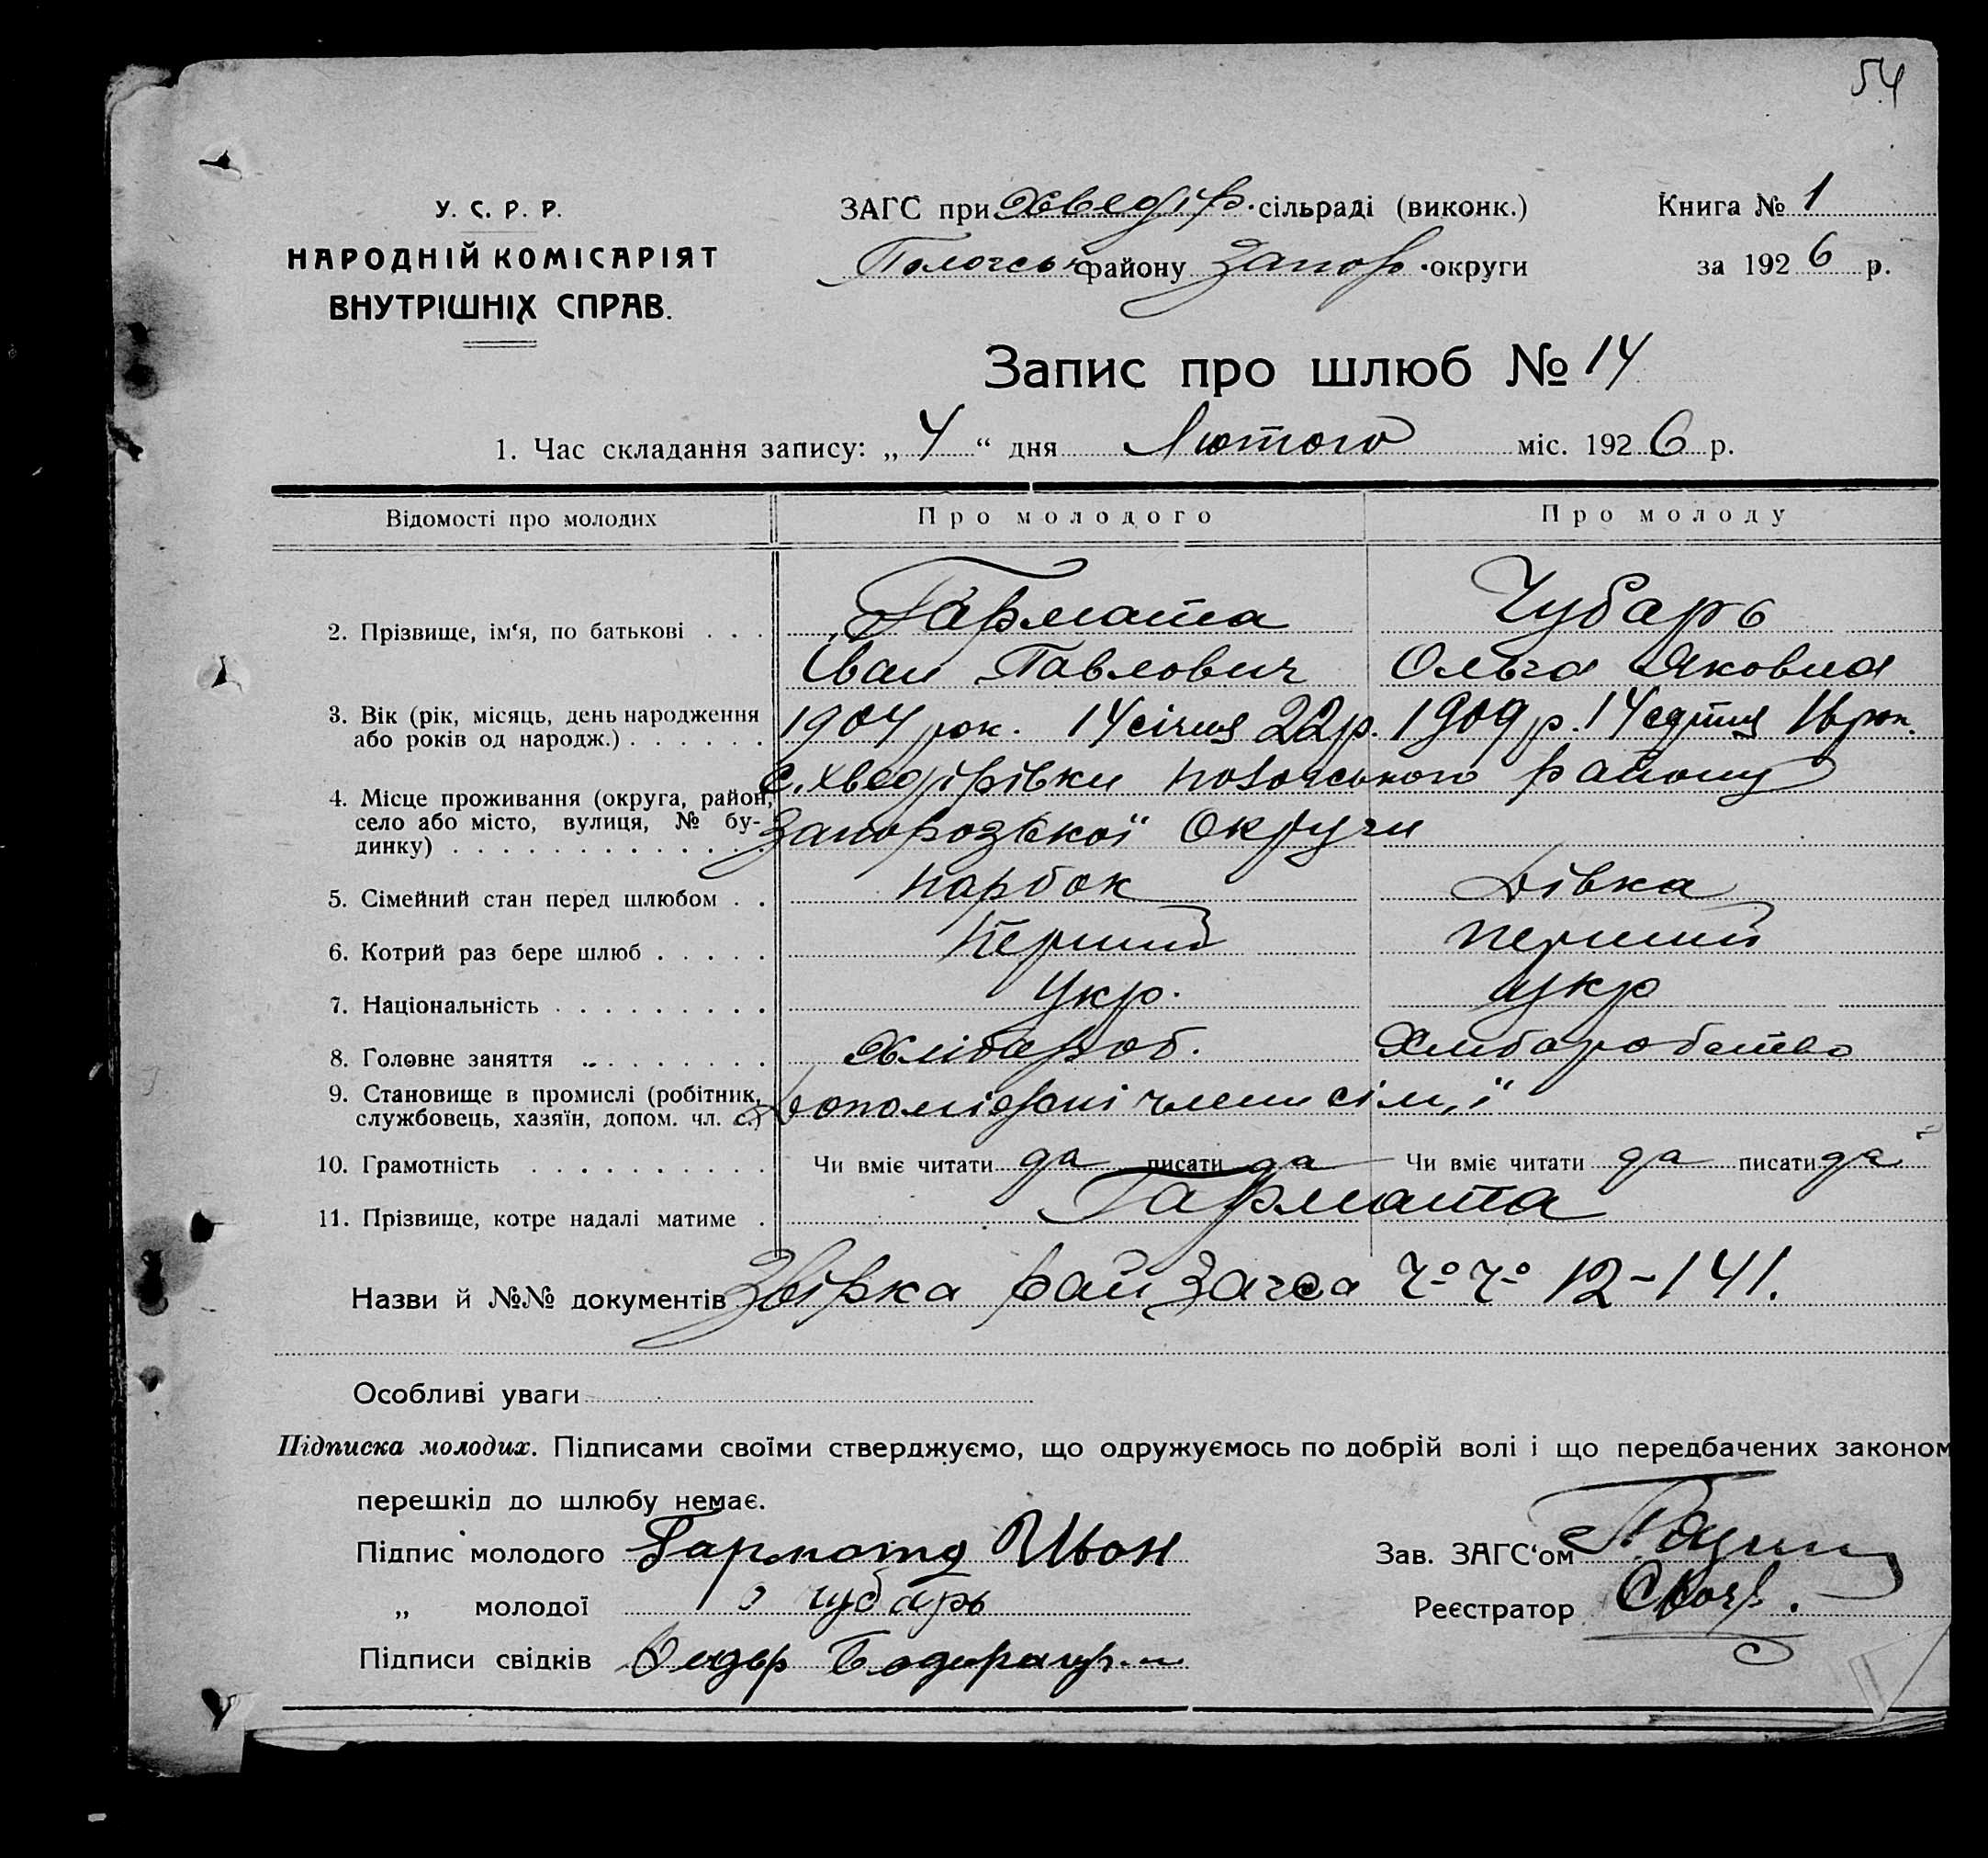 54
У. С. Р. Р.
НАРОДНІЙ КОМІСАРІЯТ
ВНУТРІШНІХ СПРАВ.
ЗАГС при Хведір. сільраді (виконк.)
Пологськ району Запор. округи
Книга № 1
за 1926 р.
Запис про шлюб № 14
1. Час складання запису: „4“ дня Лютого міс. 1926 р.
Відомості про молодих Про молодого Про молоду
2. Прізвище, ім‘я, по батькові . . . Гармата Чубарь
Іван Павлович Ольга Яковна
3. Вік (рік, місяць, день народження
або років од народж.) . . . . . . 1904 рок. 14 січня 22 р. 1909 р. 14
4. Місце проживання (округа, район,
село або місто, вулиця, № бу-
динку) . . . . . . . . . . . . . .
с. Хведірівки Пологського району
Запорозької Округи
5. Сімейний стан перед шлюбом . . парбок Дівка
6. Котрий раз бере шлюб . . . . . Перший перший
7. Національність . . . . . . . . . Укр. укр
8. Головне заняття . . . . . . . . Хлібороб. Хлиборобство
9. Становище в промислі (робітник,
службовець, хазяїн, допом. чл. с.) члени сім,ї
10. Грамотність . . . . . . . . . . Чи вміє читати да писати да Чи вміє читати да писати да
11. Прізвище, котре надалі матиме . Гармата
Назви й №№ документів Звірка рай Загса 12-141.
Особливі уваги
Підписка молодих. Підписами своїми стверджуємо, що одружуємось по добрій волі і що передбачених законом
перешкід до шлюбу немає.
Підпис молодого Гармота Ивон
„ молодої О Чубарь
Підписи свідків
Зав. ЗАГС‘ом
Реєстратор